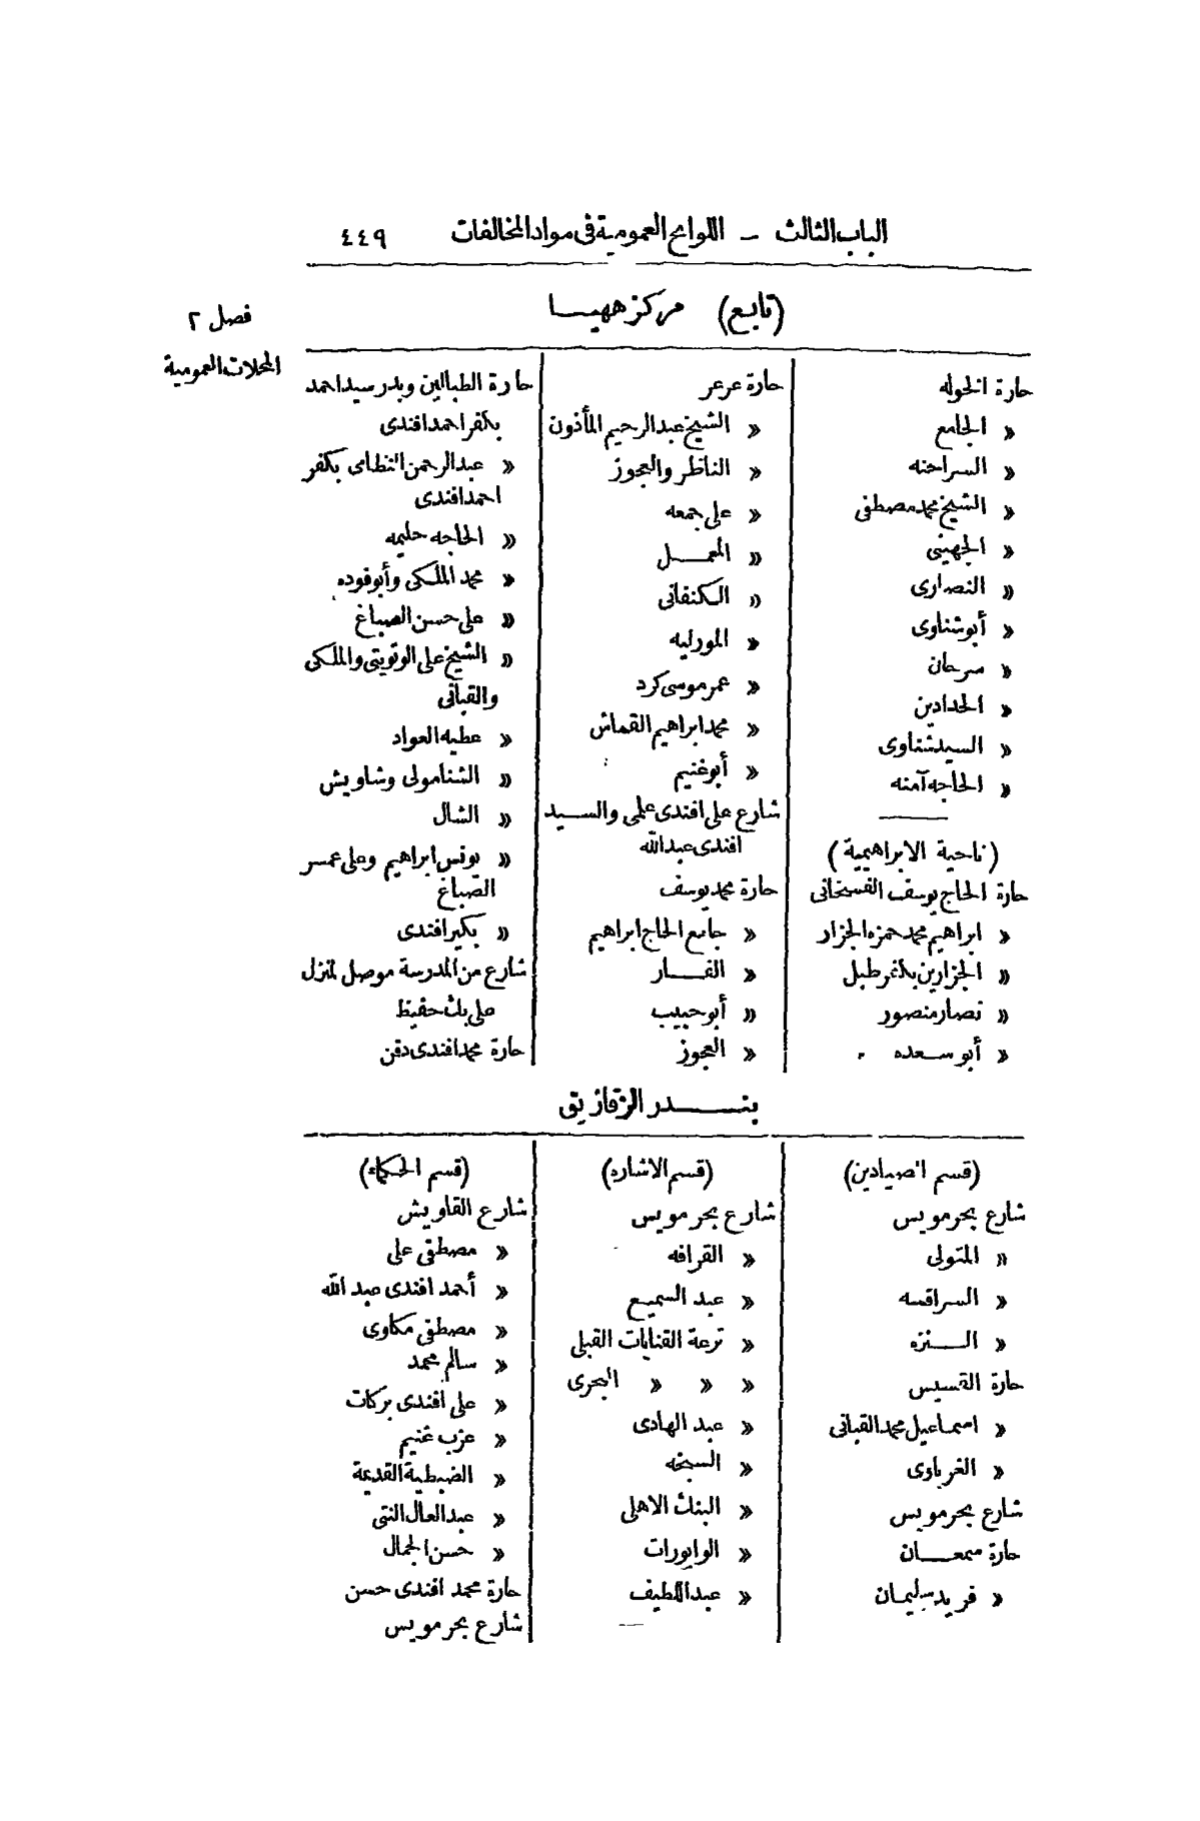 الباب الثالث – اللوائح العمومية فى مواد المخالفات ٤٤٩
فصل ٢
المحلات العمومية
(تابع) مركز ههيا
حارة الخوله
» الجامع
» السراحنه
» الشيخ محمد مصطفى
» الجهينى
» النصارى
» أبو شناوى
» سرحان
» الحدادين
» السيد شناوى
» الحاجه آمنه
(ناحية الابراهيمية)
حارة الحاج يوسف
» ابراهيم محمد حمزه الجزار
» الجزارين بكفر طبل
» نصار منصور
» أبو سعده
حارة عرعر
» الشيخ عبد الرحيم المأذون
» الناظر والعجوز
» على جمعه
» المعمل
» الكنفانى
» المورليه
» عمر موسى كرد
» محمد ابراهيم القماش
» أبو غنيم
شارع على افندى علمى والسيد
افندى عبد الله
حارة محمد يوسف
» جامع الحاج ابراهيم
» الفار
» أبو حبيب
» العجوز
حارة الطبالين وبدر سيد احمد
بكفر احمد افندى
» عبد الرحمن النظامى بكفر
احمد افندى
» الحاجه حليمه
» محمد الملكى وأبو فوده
» على حسن الصباغ
» الشيخ على الوتويتى والملكى
والقبانى
» عطيه العواد
» الشنامولى وشاويش
» الشال
» يونس ابراهيم وعلى عمر
الصباغ
» بكير افندى
شارع من المدرسة موصل لمنزل
على بك حفيظ
حارة محمد افندى دقن
بندر الزقازيق
(قسم الصيادين)
شارع بحر مويس
» المتولى
» السراقسه
» النزه
حارة القسيس
» اسماعيل محمد القبانى
» الغرباوى
شارع بحر مويس
حارة سمعان
» فريد سليمان
(قسم الاشاره)
شارع بحر مويس
» القرافه
» عبد السميع
» ترعة القنايات القبلى
» » » البحرى
» عبد الهادى
» السبخه
» البنك الاهلى
» الوابورات
» عبد اللطيف
(قسم الحكماء)
شارع القاويش
» مصطفى على
» أحمد افندى عبد الله
» مصطفى مكاوى
» سالم محمد
» على افندى بركات
» عزب غنيم
» الضبطية القديمة
» عبد العال النتى
» حسن الجمال
حارة محمد افندى حسن
شارع بحر مويس